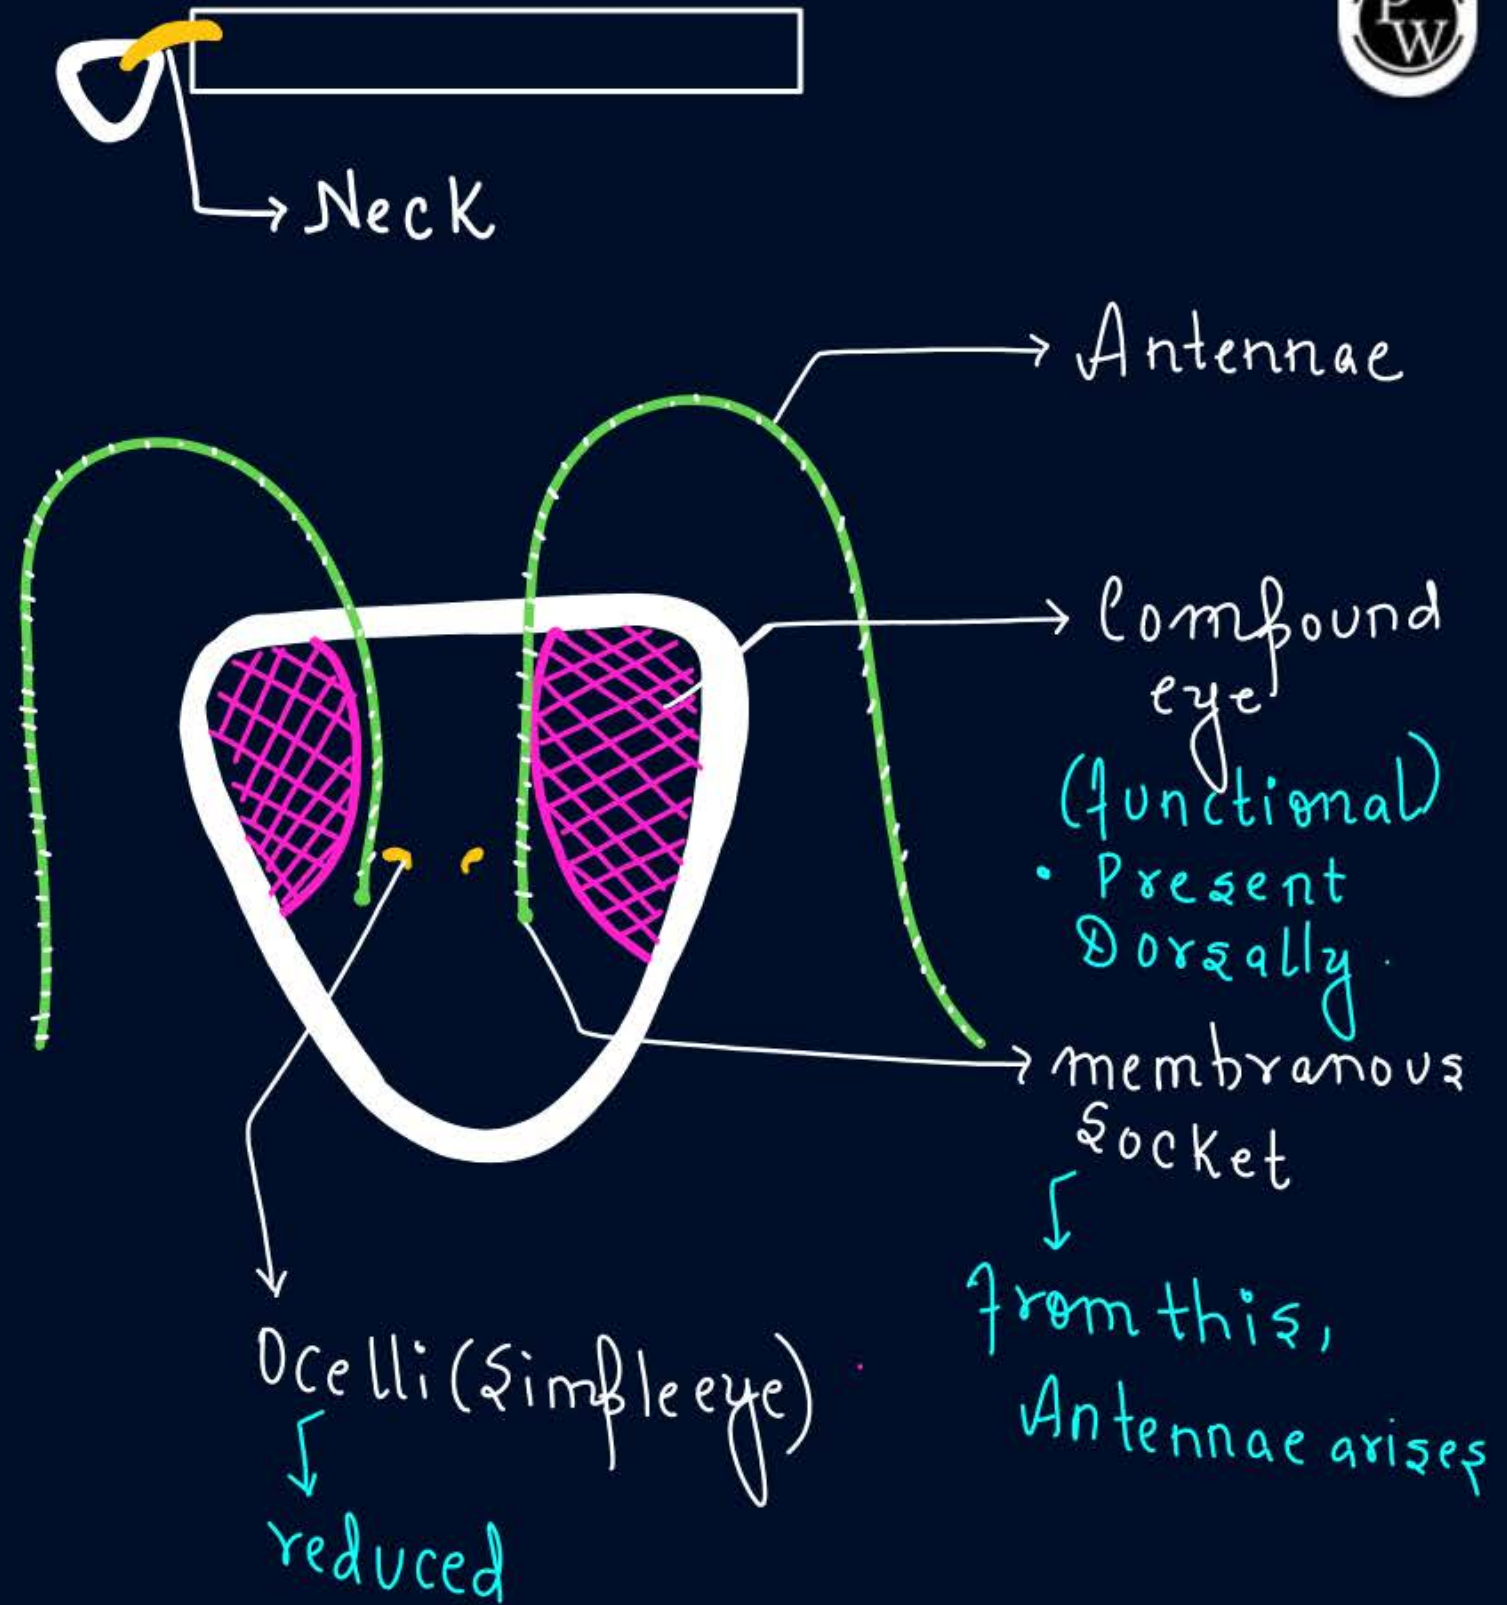 PW
Neck
Antennae
Compound
eye
(functional)
• Present
Dorsally.
membranous
Socket
from this,
Antennae arises
Ocelli (Simple eye)
reduced